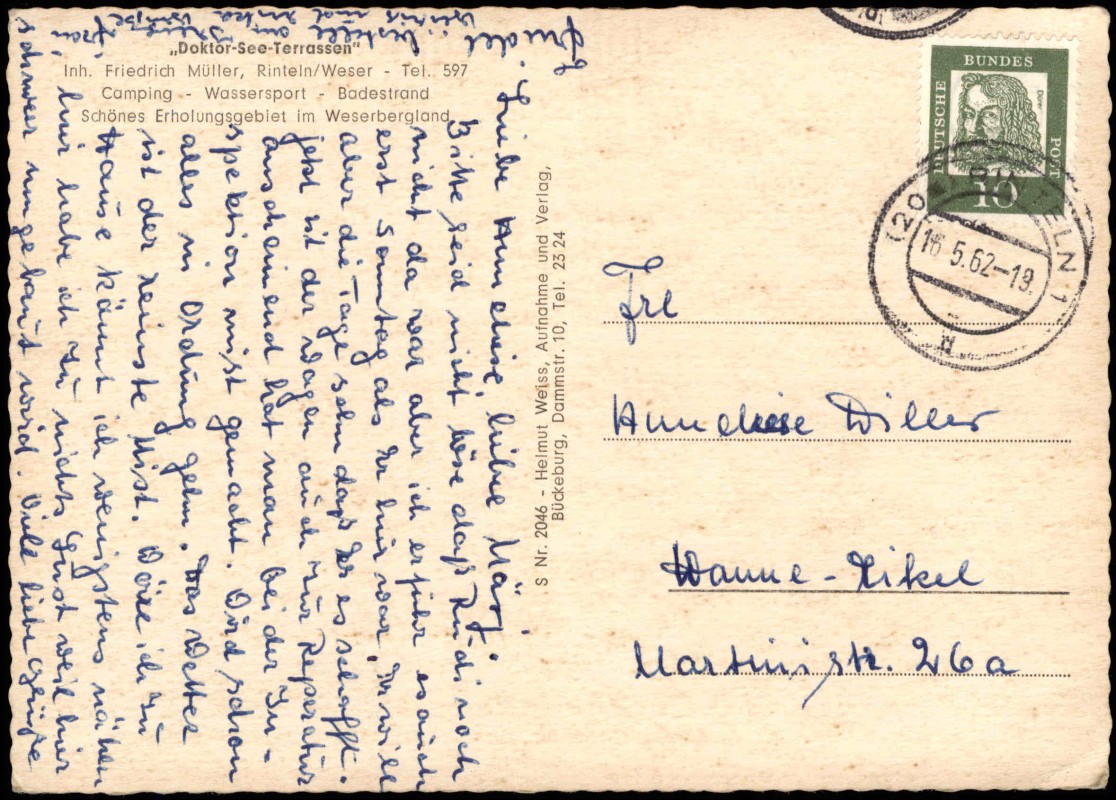 „Doktor-See-Terrassen"
Inh. Friedrich Müller, Rinteln/Weser - Tel. 597
Camping - Wassersport - Badestrand
Schönes Erholungsgebiet im Weserbergland
Liebe Anneliese liebe
Bitte seid nicht böse daß Rudi noch
nicht da war aber ich erfuhr es auch
erst Sonntag als Er hier war. Er will
aber die Tage sehn daß Er es schafft.
jetzt ist der Wagen auch zur Reperatur
anscheinend hat man bei der In-
spektion mist gemacht. Wird schon
alles in Ordnung gehn. Das Wetter
ist der reinste Mist. Wäre ich zu
Hause könnt ich wenigstens nähen
hier habe ich zu nichts Lust weil hier
schwer umgebaut wird. Viele liebe Grüße
S Nr. 2046 - Helmut Weiss, Aufnahme und Verlag,
Bückeburg, Dammstr. 10, Tel. 23 24
DEUTSCHE
BUNDES
POST
Dürer
10
(20
RINTELN 1
16.5.62-19
a
Frl
Anneliese Diller
Wanne-Eikel
Martinistr. 26a